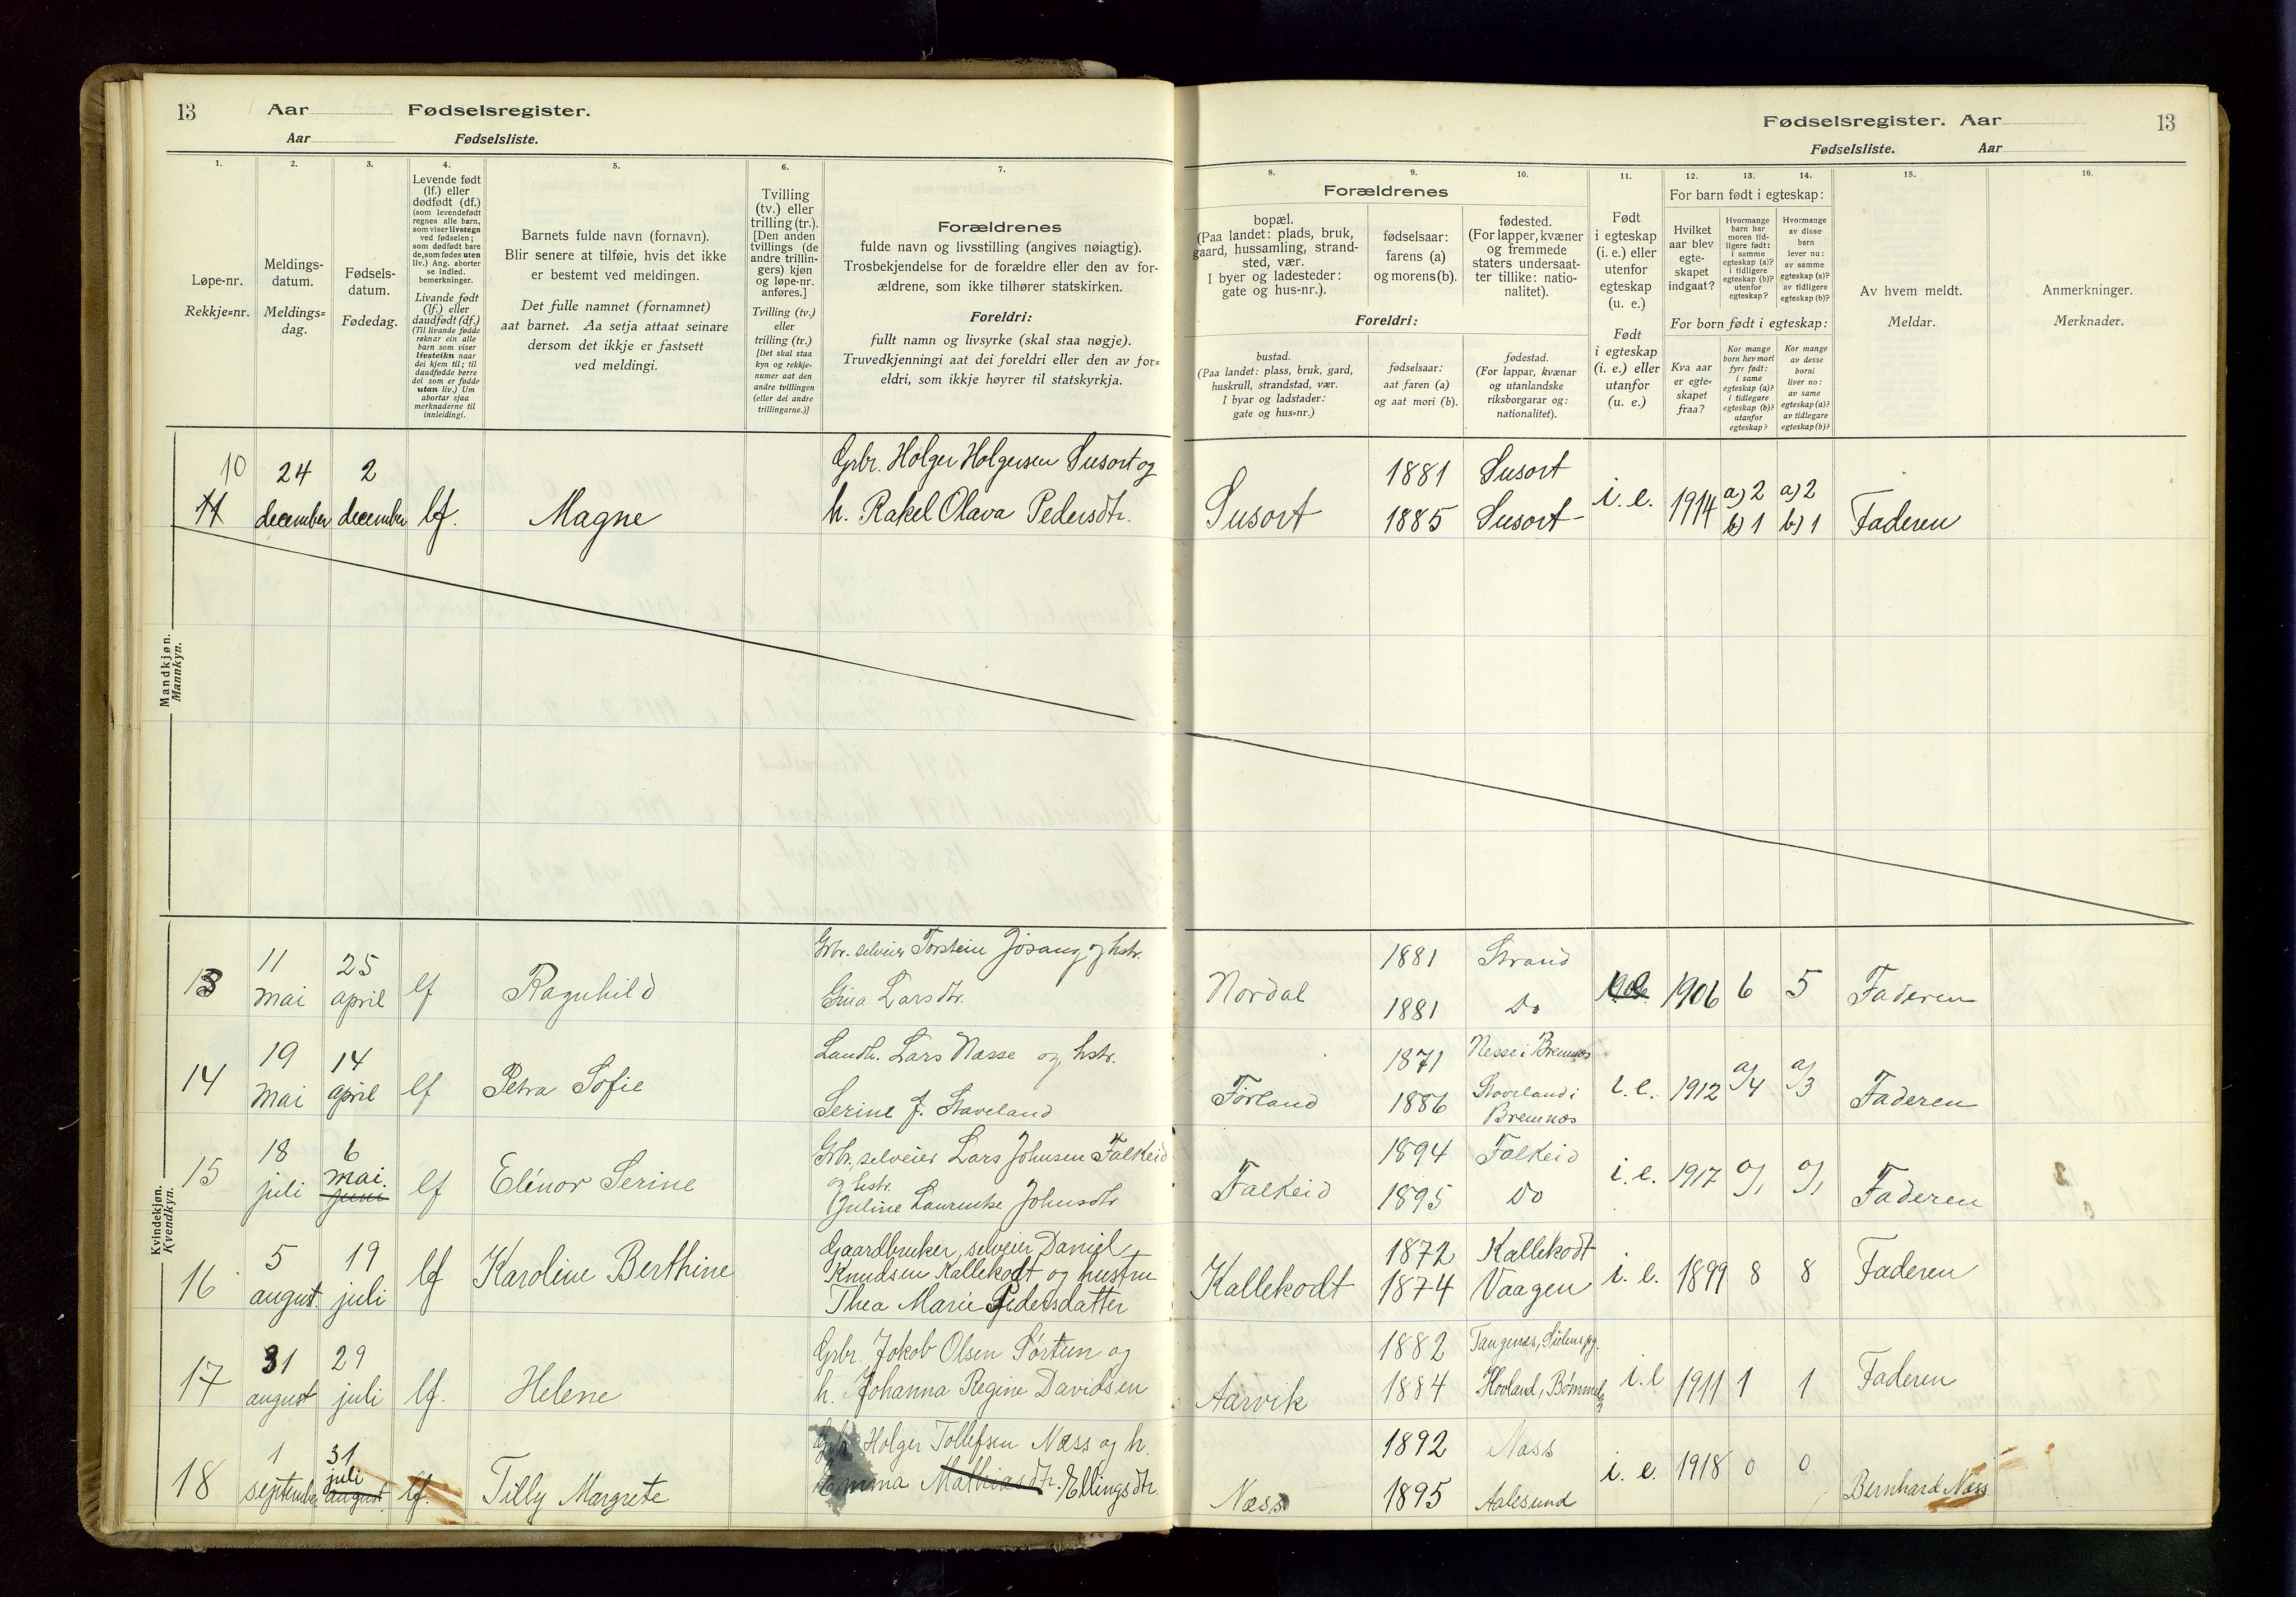 13 Aar Fødselsregister.
Aar Fødselsliste.
Fødselsregister. Aar 13
Fødselsliste. Aar
1.
Løpe-nr.
Rekkje=nr.
2.
Meldings-
datum.
Meldings=
dag.
3.
Fødsels-
datum.
Fødedag.
4.
Levende født
(lf.) eller
dødfødt (df.)
(som levendefødt
regnes alle barn,
som viser livstegn
ved fødselen;
som dødfødt bare
de, som fødes uten
liv.) Ang. aborter
se indled.
bemerkninger.
Livande født
(lf.) eller
daudfødt (df.)
(Til livande fødde
reknar ein alle
born som viser
livsteikn naar
dei kjem til; til
daudfødde berre
dei som er fødde
utan liv.) Um
abortar sjaa
merknaderne til
innleidingi.
5.
Barnets fulde navn (fornavn).
Blir senere at tilføie, hvis det ikke
er bestemt ved meldingen.
Det fulle namnet (fornamnet)
aat barnet. Aa setja attaat seinare
dersom det ikkje er fastsett
ved meldingi.
6.
Tvilling
(tv.) eller
trilling (tr.).
[Den anden
tvillings (de
andre trillin-
gers) kjøn
og løpe-nr.
anføres.]
Tvilling (tv.)
eller
trilling (tr.)
[Det skal staa
kyn og rekkje-
numer aat den
andre tvillingen
(eller dei andre
trillingarne.)]
7.
Forældrenes
fulde navn og livsstilling (angives nøiagtig).
Trosbekjendelse for de forældre eller den av for-
ældrene, som ikke tilhører statskirken.
Foreldri:
fullt namn og livsyrke (skal staa nøgje).
Truvedkjenningi aat dei foreldri eller den av for=
eldri, som ikkje høyrer til statskyrkja.
Forældrenes
8.
bopæl.
(Paa landet: plads, bruk,
gaard, hussamling, strand-
sted, vær.
I byer og ladesteder:
gate og hus-nr.).
9.
fødselsaar:
farens (a)
og morens (b).
10.
fødested.
(For lapper, kvæner
og fremmede
staters undersaat-
ter tillike: natio-
nalitet).
Foreldri:
bustad.
(Paa landet: plass, bruk, gard,
huskrull, strandstad, vær.
I byar og ladstader:
gate og hus-nr.)
fødselsaar:
aat faren (a)
og aat mori (b).
fødestad.
(For lappar, kvænar
og utanlandske
riksborgarar og:
nationalitet).
11.
Født
i egteskap
(i. e.) eller
utenfor
egteskap
(u. e.)
Født
i egteskap
(i. e.) eller
utanfor
(u. e.)
For barn født i egteskap:
12.
Hvilket
aar blev
egte-
skapet
indgaat?
13.
Hvormange
barn har
moren tid-
ligere født:
i samme
egteskap (a)?
i tidligere
egteskap (b)?
utenfor
egteskap?
14.
Hvormange
av disse
barn
lever nu:
av samme
egteskap (a)?
av tidligere
egteskap (b)?
For born født i egteskap:
Kva aar
er egte=
skapet
fraa?
Kor mange
born hev mori
fyrr født:
i same
egteskap (a)?
i tidlegare
egteskap (b)?
utanfor
egteskap?
Kor mange
av desse
borni
liver no:
av same
egteskap (a)?
av tidlegare
egteskap (b)?
15.
Av hvem meldt.
Meldar.
16.
Anmerkninger.
Merknader.
Mandkjøn.
Mannkyn.
10
11 24 december 2 december lf. Magne
Grbr. Holger Holgersen Susort og
h. Rakel Olava Pedersdtr.
Susort 1881 Susort i. e. 1914 a) 2 a) 2 Faderen
1885 Susort b) 1 b) 1
Kvindekjøn.
Kvendkyn.
13 11 mai 25 april lf Ragnhild
Grbr. selveier Torstein Jøsang og hstr.
Gina Larsdtr.
Nordal 1881 Strand 1906 6 5 Faderen
1881 Do
14 19 mai 14 april lf Petra Sofie
Landh. Lars Nasse og hstr.
Serine J. Staveland
Førland 1871 Nesse i Bremnes i. e. 1912 a/4 a/3 Faderen
1886 Stoveland i
Bremnes
15 18 juli 6 mai. juni lf Elénor Serine
Grbr. selveier Lars Johnsen Falkeid
og hstr.
Juline Lauentse Johnsdtr
Falkeid 1894 Falkeid i. e. 1917 a/1 a/1 Faderen
1895 Do
16 5 august 19 juli lf Karoline Berthine
Gaardbruker, selveier Daniel
Knudsen Kallekodt og hustru
Thea Marie Pedersdatter
Kallekodt 1872 Kallekodt i. e. 1899 8 8 Faderen
1874 Vaagen
17 31 august 29 juli lf. Helene
Grbr. Jakob Olsen Sørtun og
h. Johanna Regine Davidsen
Aarvik 1882 Tangenes, i. e 1911 1 1 Faderen
1884 Hovland,
18 1 september 31 juli august lf. Tilly Margrete
Grbr. Holger Tollefsen Næss og h.
Emma Mathiasdtr. Ellingsdtr.
Næss 1892 Næss i. e. 1918 0 0 Bernhard Næss
1895 Aalesund